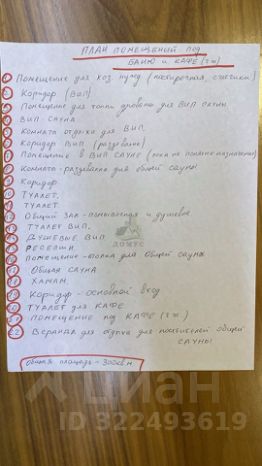 ПЛАН ПОМЕЩЕНИЙ ПОД
БАНЮ и КАФЕ (1 эт)
Помещение для хоз нужд
Коридор (ВИП)
Помещение для топки дровами для ВИП сауны
ВИП-САУНА
Комната отдыха для ВИП.
Коридор ВИП (раздевалка)
Помещение в ВИП САУНЕ (пока не понятно назначение)
Комната-раздевалка для общей сауны
Коридор
ТУАЛЕТ.
ТУАЛЕТ.
Общий ЗАЛ - помывочная и душевые
ТУАЛЕТ ВИП.
ДУШЕВЫЕ ВИП
РЕСЕПШН.
ПОМЕЩЕНИЕ-топка для общей сауны
Общая САУНА
ХАМАМ.
Коридор - основной вход
ТУАЛЕТ для КАФЕ
ПОМЕЩЕНИЕ под КАФЕ
22 Веранда для отдыха для посетителей общей
САУНЫ
Общая площадь - 300кв.м.
ДОМУС
циан
ID 322493619